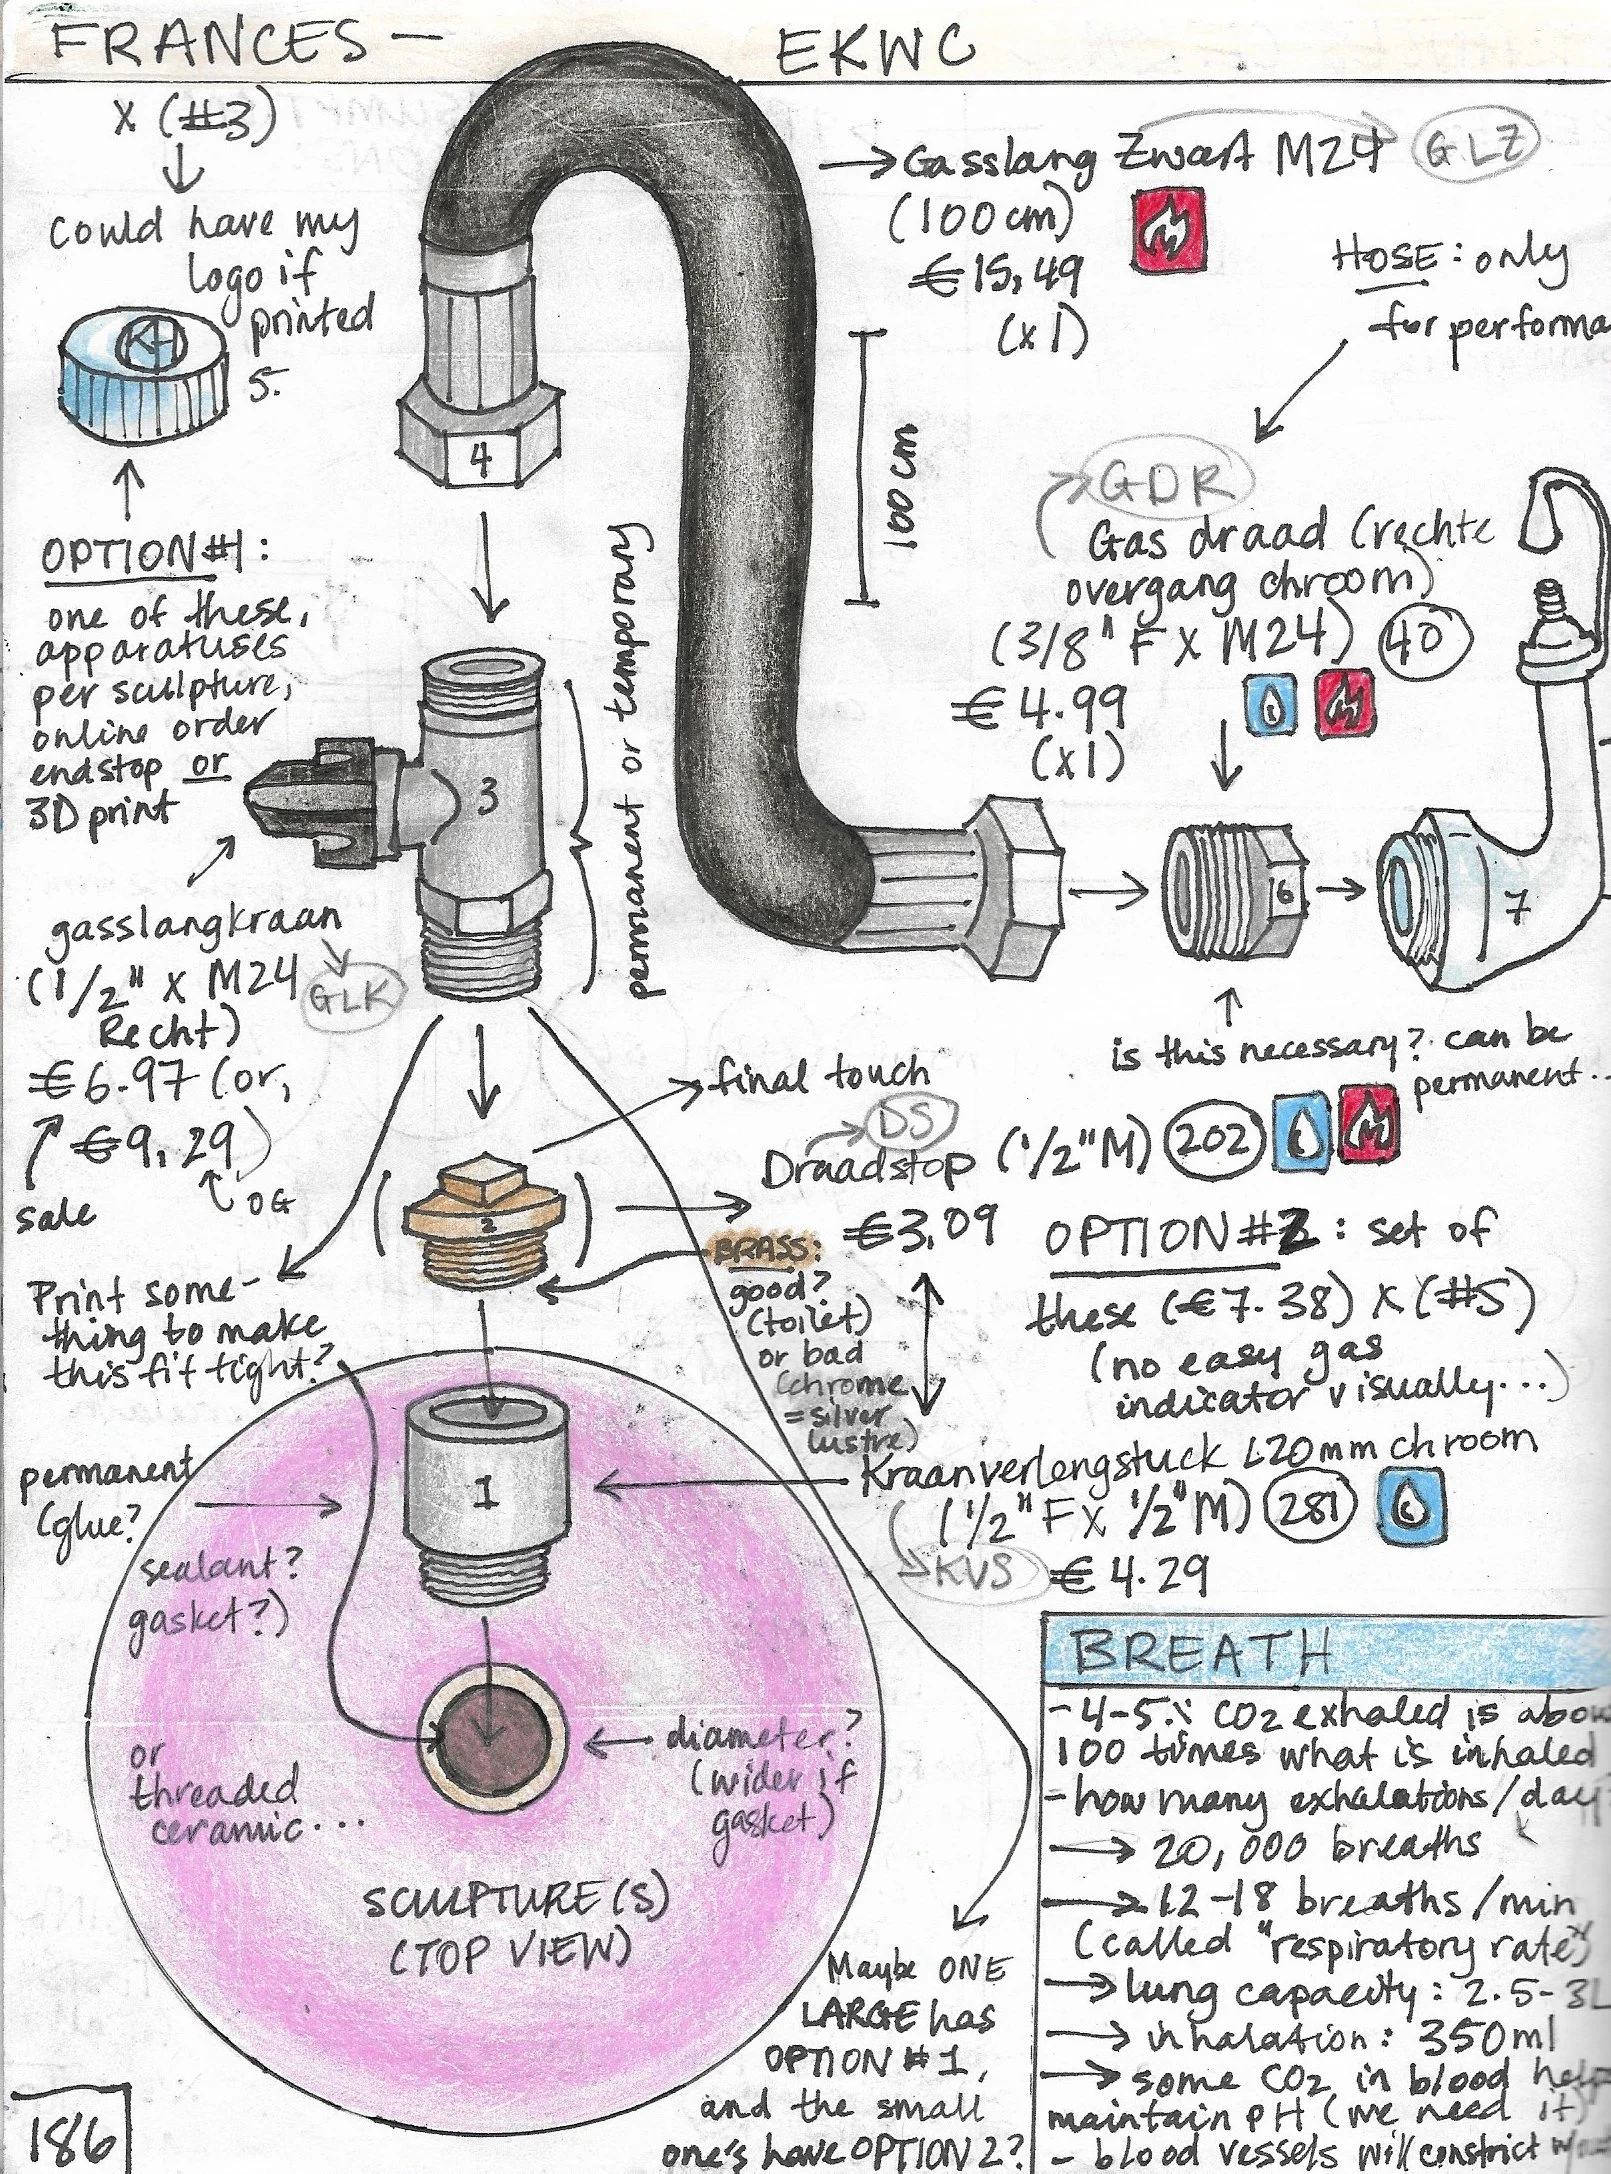 FRANCES — EKWC
X (#3)
could have my
logo if
printed
KH
5.
OPTION #1:
one of these,
apparatuses
per sculpture,
online order
endstop or
3D print
4
→ Gasslang Zwart M24 GLZ
(100cm)
€15,49
(x1)
100cm
HOSE: only
for performa
GDR
Gas draad (rechte
overgang chroom)
(3/8" F X M24) 40
€4.99
(x1)
permanent or temporary
3
6
7
gasslangkraan
(1/2" X M24
Recht)
GLK
€6.97 (or,
€9,29)
sale
OG
is this necessary? can be
permanent..
final touch
DS
Draadstop (1/2"M) 202
€3,09
2
BRASS:
good?
(toilet)
or bad
(chrome
=silver
lustre)
OPTION #2: set of
these (€7.38) X (#5)
(no easy gas
indicator visually...)
Print some-
thing to make
this fit tight?
1
Kraanverlengstuck L20mm chroom
(1/2" F X 1/2" M) 281
KVS €4.29
permanent
(glue?
sealant?
gasket?)
or
threaded
ceramic...
diameter?
(wider if
gasket)
SCULPTURE(S)
(TOP VIEW)
Maybe ONE
LARGE has
OPTION #1,
and the small
one's have OPTION 2?
BREATH
- 4-5% CO2 exhaled is abou
100 times what is inhaled
- how many exhalations/day
→ 20,000 breaths
→ 12-18 breaths/min
(called "respiratory rate")
→ lung capacity: 2.5-3L
→ inhalation: 350ml
→ some CO2 in blood help
maintain pH (we need it)
- blood vessels will constrict
186